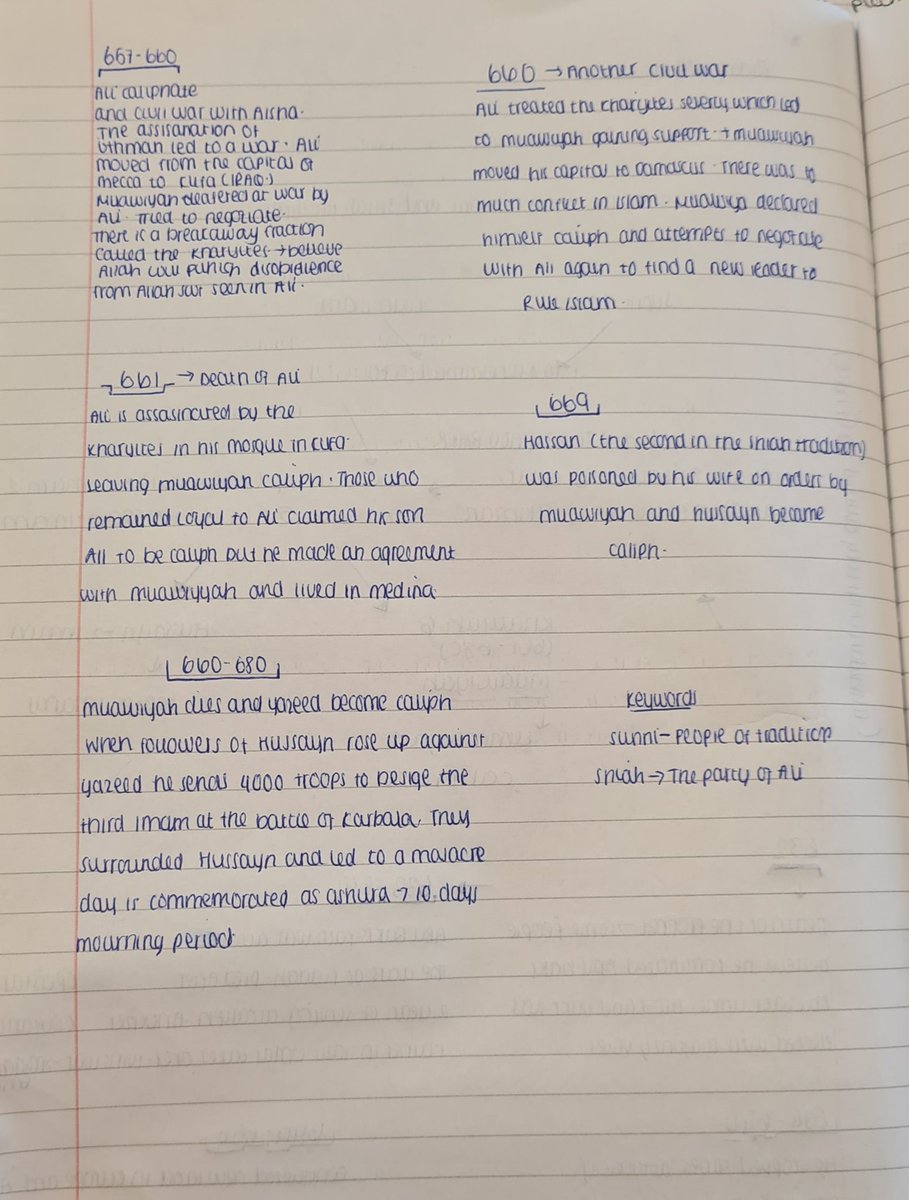 667-660
Ali caliphate
and civil war with Aisha.
The assisanation of
Uthman led to a war. Ali
moved from the capital of
mecca to cufa (IRAQ)
Muawiyah deafered at war by
Ali. Tried to negotiate.
There is a breakaway fraction
called the Kharijites → believe
Allah will punish disobidience
from Allah seen in Ali.
660 → Another Civil war
Ali treated the charijites severly, which led
to muawiyah gaining support. + muawiyah
moved his capital to Damascus. There was so
much conflict in Islam. Muawiya declared
himself caliph and attempts to negotiate
with Ali again to find a new leader to
Rule Islam.
661 → Death of Ali
Ali is assasinated by the
Kharijites in his mosque in cufa.
Leaving muawiyah caliph. Those who
remained loyal to Ali claimed his son
Ali to be caliph but he made an agreement
with muawiyyah and lived in medina.
669
Hassan (the second in the shiah tradition)
was poisoned by his wife on orders by
muawiyah and husayn became
caliph.
660-680
muawiyah dies and yazeed become caliph
when followers of Hussayn rose up against
yazeed he sends 4000 troops to besige the
third imam at the battle of Karbala. They
surrounded Hussayn and led to a masacre
day is commemorated as ashura → 10 days
mourning period
Keywords
sunni- People of tradition
shiah → The party of Ali